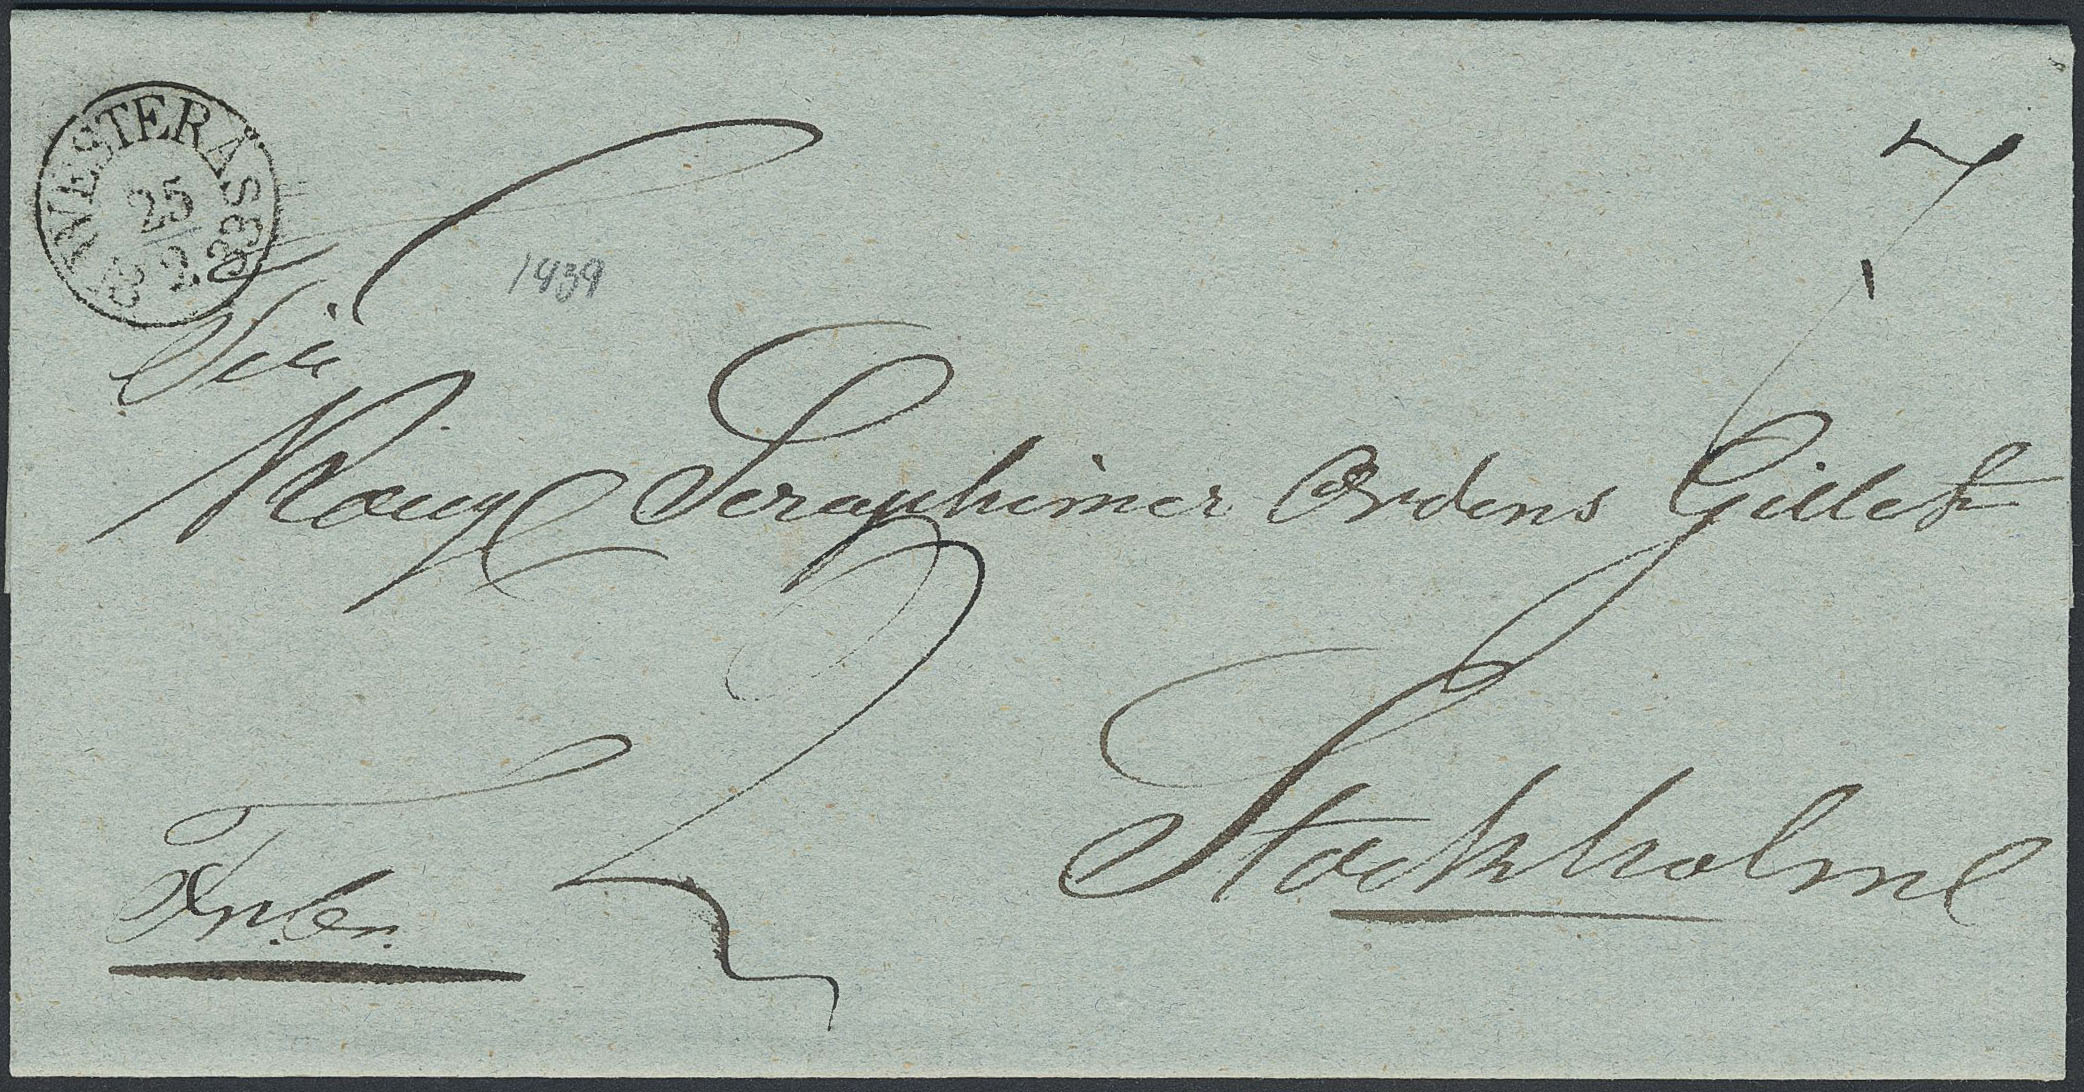 WESTERÅS
25
2
1833
1939
7
Till
Kongl Seraphimer Ordens Gillet
Stockholm